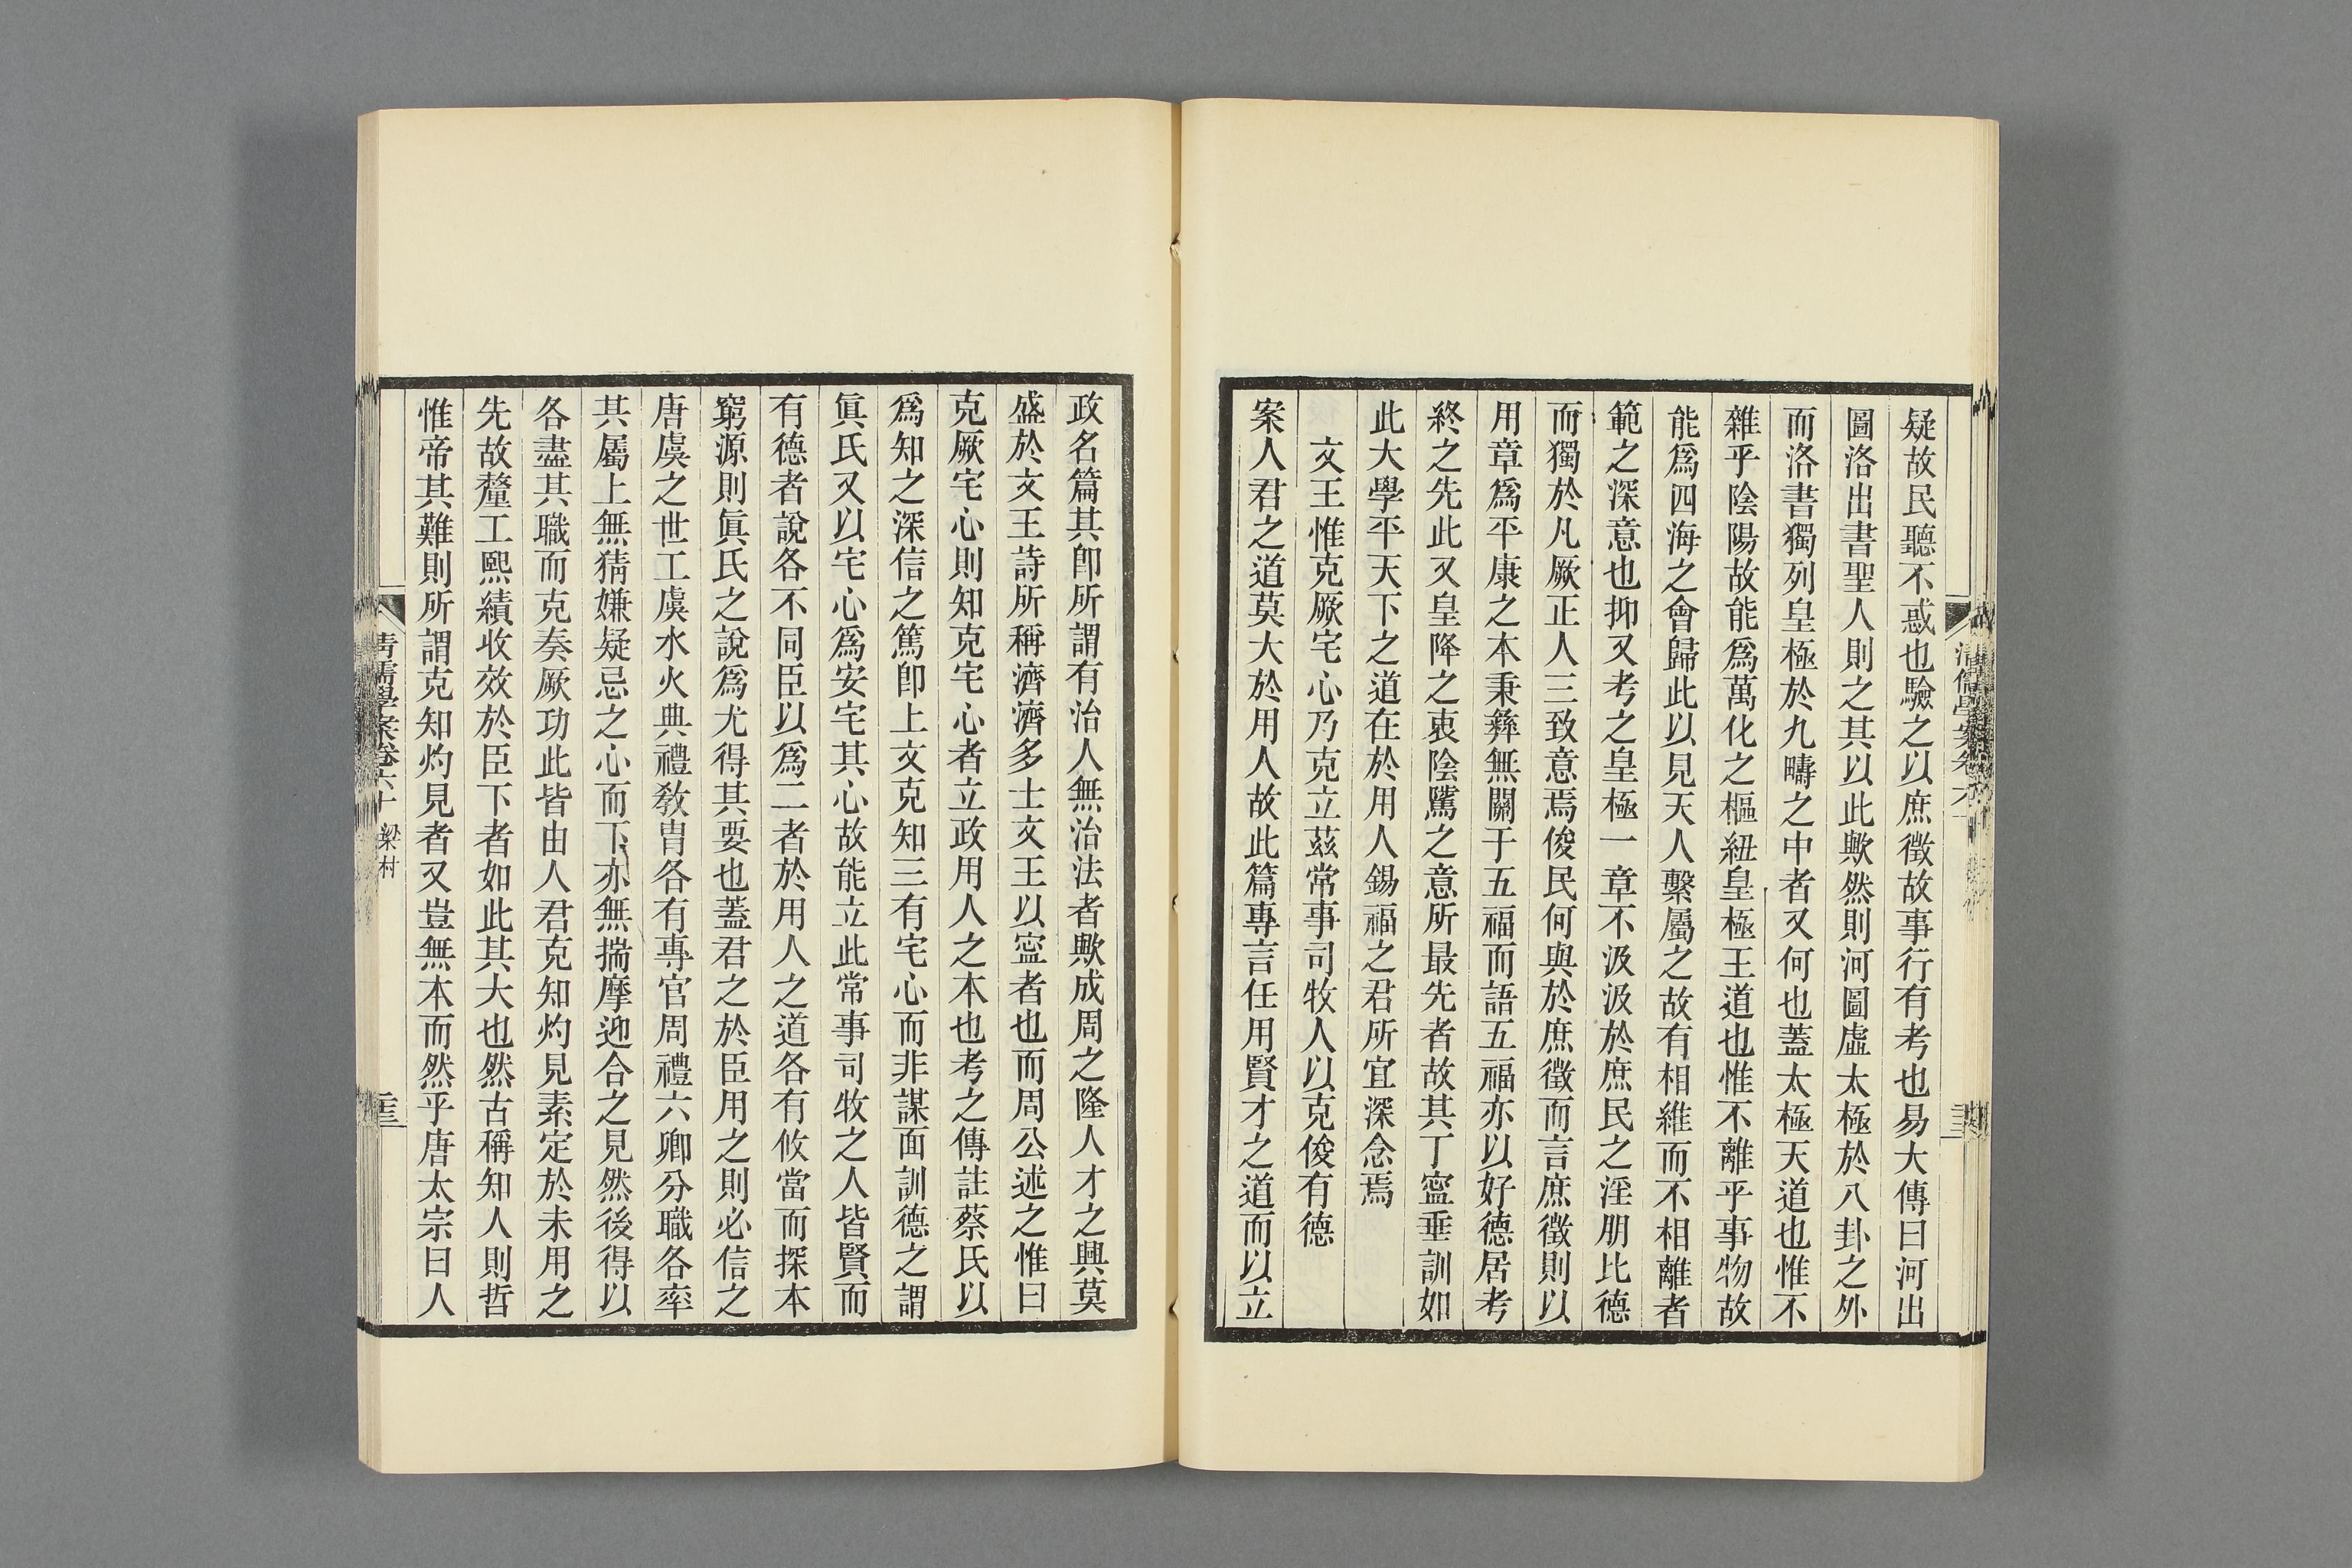 疑故民聽不惑也驗之以庶徵故事行有考也易大傳曰河出
圖洛出書聖人則之其以此歟然則河圖虛太極於八卦之外
而洛書獨列皇極於九疇之中者又何也蓋太極天道也惟不
雜乎陰陽故能爲萬化之樞紐皇極王道也惟不離乎事物故
能爲四海之會歸此以見天人繫屬之故有相維而不相離者
範之深意也抑又考之皇極一章不汲汲於庶民之淫朋比德
而獨於凡厥正人三致意焉俊民何與於庶徵而言庶徵則以
用章爲平康之本秉彝無關于五福而語五福亦以好德居考
終之先此又皇降之衷陰騭之意所最先者故其丁寧垂訓如
此大學平天下之道在於用人錫福之君所宜深念焉
文王惟克厥宅心乃克立茲常事司牧人以克俊有德
案人君之道莫大於用人故此篇專言任用賢才之道而以立
政名篇其卽所謂有治人無治法者歟成周之隆人才之興莫
盛於文王詩所稱濟濟多士文王以寧者也而周公述之惟曰
克厥宅心則知克宅心者立政用人之本也考之傳註蔡氏以
爲知之深信之篤卽上文克知三有宅心而非謀面訓德之謂
眞氏又以宅心爲安宅其心故能立此常事司牧之人皆賢而
有德者說各不同臣以爲二者於用人之道各有攸當而探本
窮源則眞氏之說爲尤得其要也蓋君之於臣用之則必信之
唐虞之世工虞水火典禮敎胄各有專官周禮六卿分職各率
其屬上無猜嫌疑忌之心而下亦無揣摩迎合之見然後得以
各盡其職而克奏厥功此皆由人君克知灼見素定於未用之
先故釐工熙績收效於臣下者如此其大也然古稱知人則哲
惟帝其難則所謂克知灼見者又豈無本而然乎唐太宗曰人
清儒學案卷六十 梁村